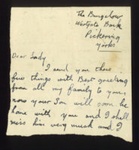 The Bungalow
Westgate Bank
Pickering
Yorks
Dear Lady
I send you these
few things with Best good wishes
from all my family to yours
now your Son will soon be
home with you and I shall
miss him very much and I